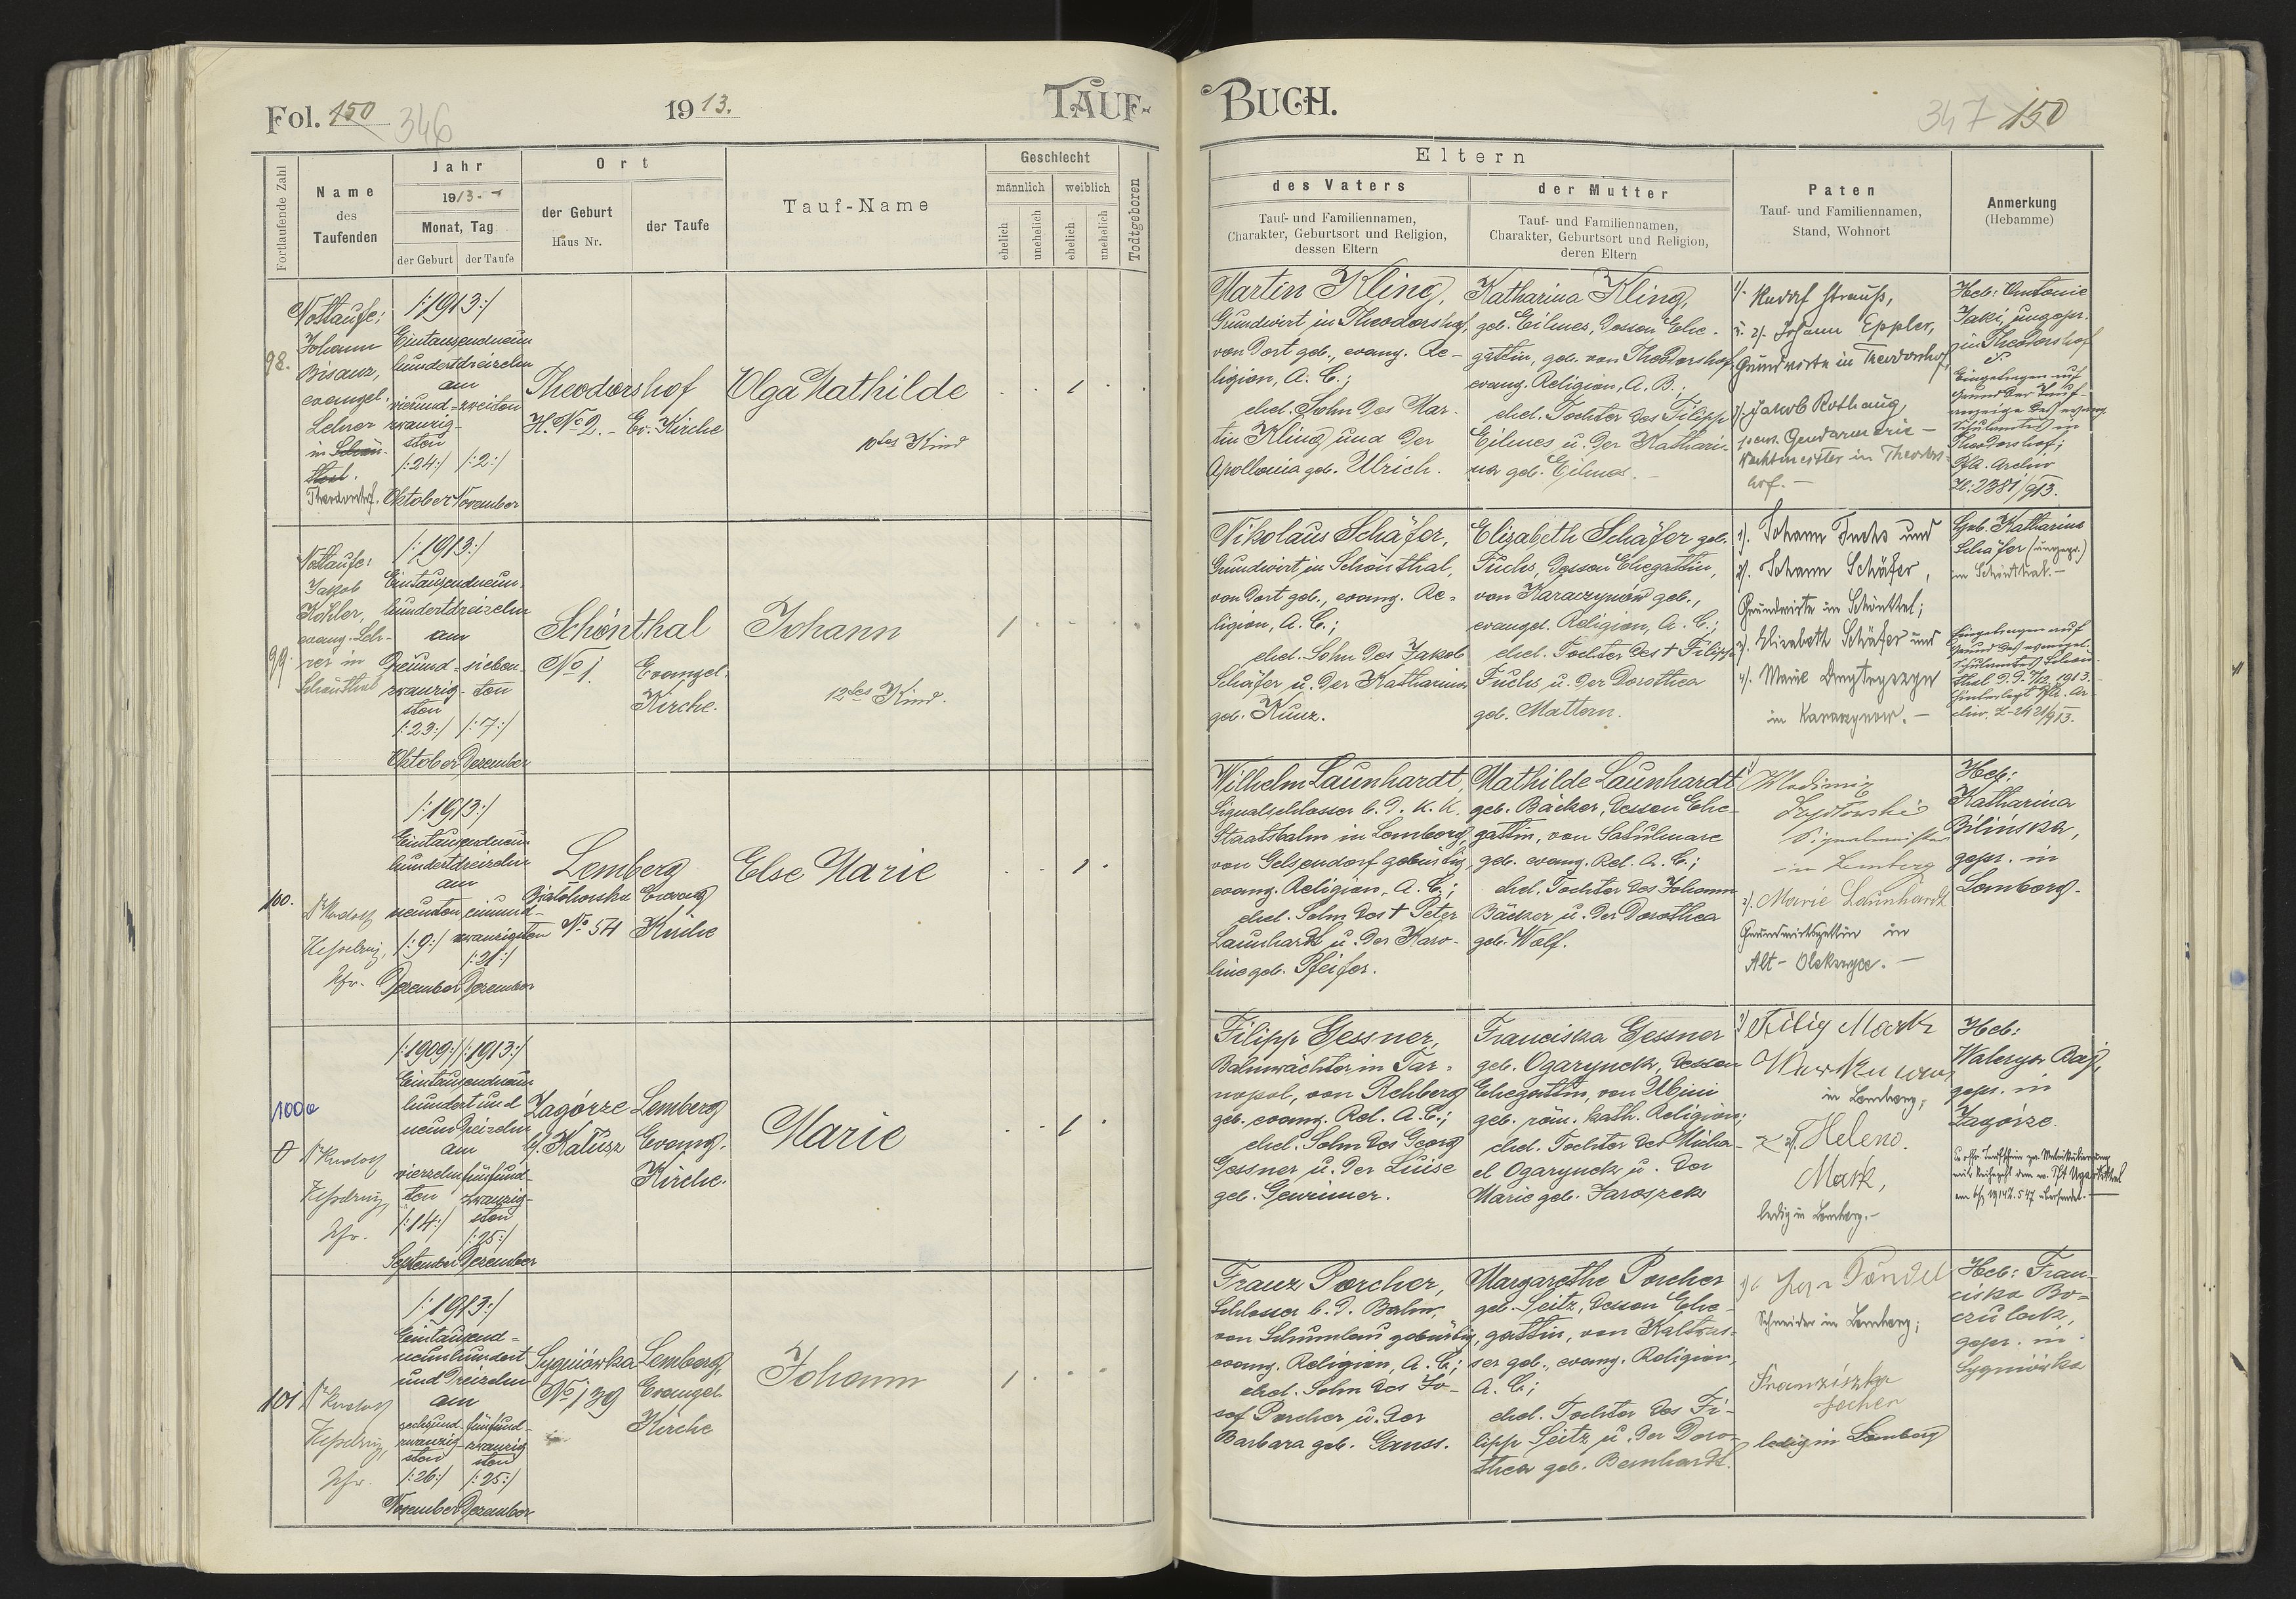 Fol. 150
346
1913.
TAUF-
Fortlaufende Zahl
Name
des
Taufenden
Jahr
1913.-
Monat, Tag
der Geburt
der Taufe
Ort
der Geburt
Haus Nr.
der Taufe
Tauf-Name
Geschlecht
männlich
weiblich
ehelich
unehelich
ehelich
unehelich
Todtgeboren
98.
Nottaufe:
Johann
Bisanz,
evangel.
Lehrer
in Schön-
thal.
Theodorshof.
/:1913:/
Eintausendneun
hundertdreizehn
am
vierund-
zwanzig-
sten
/:24:/
Oktober
zweiten
/:2:/
November
Theodorshof
H. No 2.-
Ev. Kirche
Olga Mathilde
10tes Kind
99.
Nottaufe:
Jakob
Köhler,
evang. Leh-
rer in
Schönthal
/:1913:/
Eintausendneun-
hundertdreizehn
am
dreiund-
zwanzig-
sten
/:23:/
Oktober
sieben-
ten
/:7:/
Dezember
Schönthal
No 1.
Evangel.
Kirche.
Johann
12tes Kind.
100.
Dr Rudolf
Kesselring,
Pfr.
/:1913:/
Eintausendneun
hundertdreizehn
am
neunten
/:9:/
Dezember
einund-
zwanzigsten
/:21:/
Dezember
Lemberg
No 54
Evang
Kirche
Else Marie
100a
Dr Rudolf
Kesselring,
Pfr.
/:1909:/ /:1913:/
Eintausendneun
hundert und
neun dreizehn
am
vierzehn-
ten
/:14:/
September
fünfund-
zwanzig-
sten
/:25:/
Dezember
Zagórze
b/. Kałusz
Lemberg
Evang.
Kirche.
Marie
101
Dr Rudolf
Kesselring,
Pfr.
/:1913:/
Eintausend-
neunhundert
und dreizehn
am
sechsund-
zwanzig-
sten
/:26:/
November
fünfund-
zwanzig
sten
/:25:/
Dezember
Sygniówka
No 139
Lemberg,
Evangel.
Kirche
Johann
BUCH.
347 150
Eltern
des Vaters
Tauf- und Familiennamen,
Charakter, Geburtsort und Religion,
dessen Eltern
der Mutter
Tauf- und Familiennamen,
Charakter, Geburtsort und Religion,
deren Eltern
Paten
Tauf- und Familiennamen,
Stand, Wohnort
Anmerkung
(Hebamme)
Martin Kling,
Grundwirt in Theodorshof,
von dort geb., evang. Re-
ligion, A. C.;
ehel. Sohn des Mar-
tin Kling und der
Apollonia geb. Ulrich.
Katharina Kling,
geb. Eilmes, dessen Ehe-
gattin, geb. von Theodorshof
evang. Religion, A. B.;
ehel. Tochter des Filipp
Eilmes u. der Kathari-
na geb. Eilmes.-
1/. Rudolf Strauß,
u. 2/. Johann Eppler,
Grundwirte in Theodorshof,
3/. Jakob Rothaug,
pens. Gendarmerie-
Wachtmeister in Theodors-
hof.-
Heb: Antonie
Jaki, ungepr.
in Theodorshof
Eingetragen auf
Grund der Tauf-
anzeige des evang.
Schulamtes in
Theodorshof;
Pfa. Archiv
Zl: 2381/913.
Nikolaus Schäfer,
Grundwirt in Schönthal,
von dort geb., evang. Re-
ligion, A. C.;
ehel. Sohn des Jakob
Schäfer u. der Katharina
geb. Kunz.
Elisabeth Schäfer geb.
Fuchs, dessen Ehegattin,
von Karaczynów geb.,
evangel. Religion, A. C.;
ehel. Tochter des † Filipp
Fuchs u. der Dorothea
geb. Mattern.
1/. Johann Fuchs und
2/. Johann Schäfer,
Grundwirte in Schönthal;
3/. Elisabeth Schäfer und
4/. Marie
in Karaczynow.-
Geb. Katharina
Schäfer (ungepr.)
in Schönthal.-
Eingetragen auf
Grund des evangel.
Schulamtes Schön-
thal d. d. 7/12. 1913.
hinterlegt Pfr. Ar-
chiv. Z-2421/913.
Wilhelm Launhardt,
Signalschlosser b. d. k. k.
Staatsbahn in Lemberg,
von Gelsendorf gebürtig,
evang. Religion, A. C.;
ehel. Sohn des † Peter
Launhardt u. der Karo-
line geb. Pfeifer.
Mathilde Launhardt
geb. Bäcker, dessen Ehe-
gattin, von Satulmare
geb. evang. Rel. A. C.;
ehel. Tochter des Johann
Bäcker u. der Dorothea
geb. Wolf.
1/ Wladimir
Signalmeister
in Lemberg
2/. Marie Launhardt
Grundwirtsgattin in
Alt-Oleksyce.-
Heb:
Katharina
Bilińska,
gepr. in
Lemberg.
Filipp Gessner,
Bahnwächter in Tar-
nopol, von Rehberg
geb. evang. Rel. A. C.;
ehel. Sohn des Georg
Gessner u. der Luise
geb. Geurimer.
Franciska Gessner
geb. Ogarynek, dessen
Ehegattin, von Ubinie
geb. röm. kath. Religion;
ehel. Tochter des Micha-
el Ogarynek u. der
Marie geb. Jaroszek
1/ Filip Mark
in Lemberg;
2/. Helene
Mark,
ledig in Lemberg.-
Heb:
Walerya Baj,
gepr. in
Zagórze.
Franz Porcher,
Schlosser b. d. Bahn,
von Schumlau gebürtig,
evang. Religion, A. C.;
ehel. Sohn des Jo-
sef Porcher u. der
Barbara geb. Gauss.
Margarethe Porcher
geb. Seitz, dessen Ehe-
gattin, von Kaltwas-
ser geb., evang. Religion,
A. C.;
ehel. Tochter des Fi-
lipp Seitz u. der Doro-
thea geb. Bernhardt.
Schneider in Lemberg;
Franziszka
Jochen
ledig in Lemberg
Heb: Fran-
ciska Bo-
czulack,
gepr. in
Sygniówka